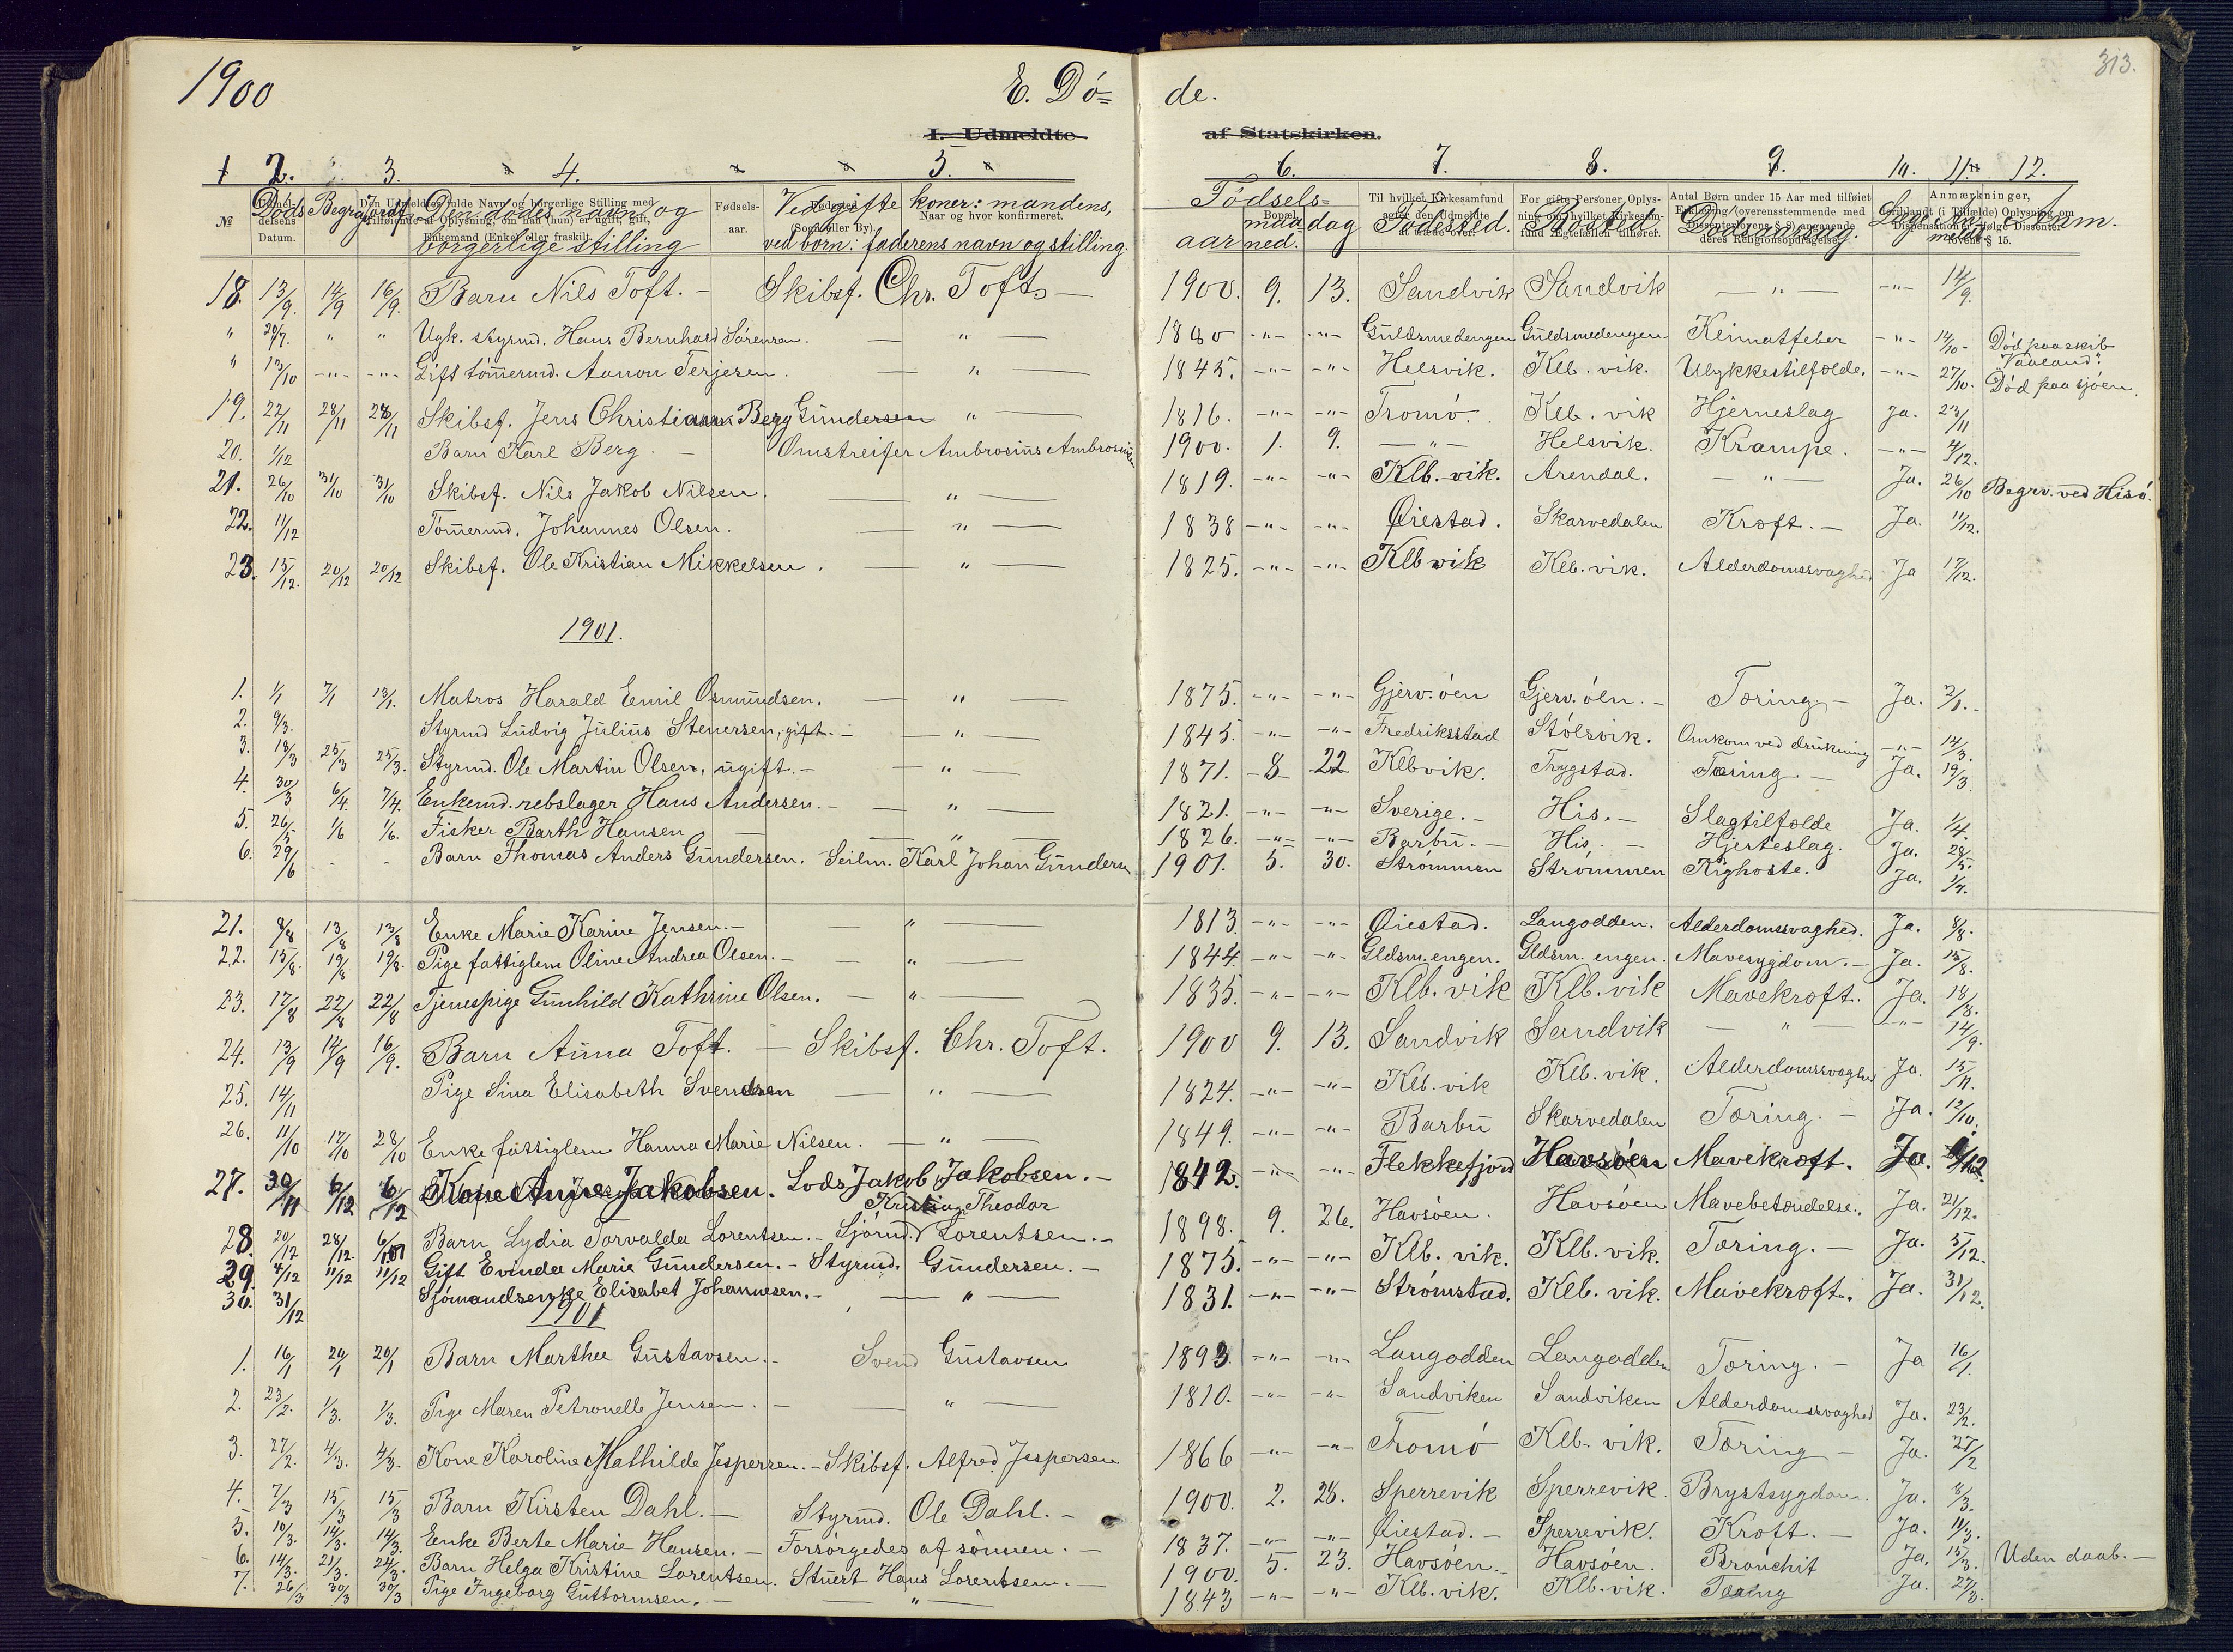 313.
1900 E. Dö= de.
I. Udmeldte af Statskirken.
1 2. 3. 4. 5. 6. 7. 8. 9. 10. 11. 12.
№ Døds Begr. Jordf. Den dødes navn og borgerlige stilling Fødsels-aar. Ved gifte koner: mandens, ved børn: faderens navn og stilling. Fødsels= aar maaned. dag Fødested. Bosted Dødsaarsag. Læge Anmeldt Anm.
18. 13/9. 14/9 16/9. Barn Nils Toft. – Skibsf. Chr. Toft – 1900. 9. 13. Sandvik Sandvik — " — -"- 14/9.
" 20/7. " " Ugk. styrmd. Hans Bernhard Sörensen. — " — 1880 -"- -"- Guldsmedengen Guldsmedengen Klimatfeber -"- 14/10- Död paa skib "Vaaland".
" 13/10 -"- -"- Gift tömermd. Aanon Terjesen. — " — 1845. -"- -"- Helsvik. Klb. vik. Ulykkestilfælde. -"- 27/10. Död paa sjöen.
19. 22/11 28/11 28/11 Skibsf. Jens Christian Berg Gundersen " — 1816. -"- -"- Tromö. Klb. vik Hjerneslag Ja. 23/11
20. 1/12 Barn Karl Berg. – Omstreifer Ambrosius Ambrosiusen 1900. 1. 9. — " — Helsvik. Krampe. -"- 4/12.
21. 26/10 31/10 31/10 Skibsf. Nils Jakob Nilsen. — " — 1819. -"- -"- Klb.-vik. Arendal. — " — Ja. 26/10 Begrv. ved Hisö.
22. 11/12 Tömermd. Johannes Olsen. — " — 1838 -"- -"- Öiestad. Skarvedalen Kræft. – Ja. 11/12.
23. 15/12. 20/12 20/12 Skibsf. Ole Kristian Mikkelsen. — " — 1825. -"- -"- Klb vik Klb. vik. Alderdomssvaghed Ja 17/12.
1901.
1. 1/1 7/1 13/1. Matros Harald Emil Osmundsen. — " — 1875. -"- -"- Gjerv. öen Gjerv. öen. – Tæring. – Ja. 2/1. –
2. 9/3. Styrmd Ludvig Julius Stenersen, gift. – — " — 1845. -"- -"- Fredriksstad Stölsvik. Omkom ved drukning -"- 14/3.
3. 18/3 25/3 25/3. Styrmd. Ole Martin Olsen, ugift. – — " — 1871. -8- 22 Klbvik. Trygstad. Tæring. – Ja. 19/3
4. 30/3 6/4. 7/4. Enkemd. rebslager Hans Andersen. – — " — 1821. -"- -"- Sverige. – His. – Slagtilfælde Ja. 1/4.
5. 26/5 1/6 1/6. Fisker Barth Hansen — — " — 1826. -"- -"- Barbu. – His. – Hjerteslag. Ja. 28/5.
6. 29/6 - - Barn Thomas Anders Gundersen. Seilm. Karl Johan Gundersen 1901. 5. 30. Strömmen Strömmen Kighoste. Ja. 1/7.
21. 8/8 13/8 13/8 Enke Marie Karine Jensen. – — " — 1813. -"- -"- Öiestad. Langodden. Alderdomssvaghed. Ja. 8/8.
22. 15/8. 19/8 19/8. Pige fattiglem Oline Andrea Olsen. – — " — 1844. -"- -"- Gldsm. engen. Gldsm. engen. Mavesygdom. – Ja. 15/8.
23. 17/8 22/8 22/8 Tjenespige Gunhild Kathrine Olsen. — " — 1835. -"- -"- Klb. vik Klb. vik Mavekræft. Ja. 18/8.
24. 13/9 14/9 16/9. Barn Anna Toft. – Skibsf. Chr. Toft. 1900 9. 13. Sandvik Sandvik — " — -"- 14/9.
25. 14/11 Pige Sina Elisabeth Svendsen — " — 1824. -"- -"- Klb. vik Klb. vik. Alderdomssvaghed Ja. 15/11.
26. 11/10 17/10 28/10 Enke fattiglem Hanna Marie Nilsen. — " — 1849. -"- -"- Barbu Skarvedalen Tæring. – Ja. 12/10.
27. 30/11 6/12 6/12 Kone Anne Jakobsen. Lods Jakob Jakobsen. – 1842. -"- -"- Flekkefjord Havsöen Mavekræft. Ja. /12.
Kristian Theodor
28. 20/12 28/12. 6/1.01 Barn Lydia Torvalda Lorentsen. – Sjömd. Lorentsen. – 1898. 9. 26. Havsöen. Havsöen Mavebetændelse. Ja. 21/12.
29. 4/12 11/12 11/12 Gift Evinda Marie Gundersen. – Styrmd. Gundersen. – 1875. -"- -"- Klb. vik. Klb. vik. Tæring. – Ja. 5/12.
30. 31/12 Sjömandsenke Elisabet Johannesen. – — " — 1831. -"- -"- Strömstad. Klb. vik. Mavekræft. Ja. 31/12.
1901
1. 16/1 20/1 20/1 Barn Marthe Gustavsen. – Svend Gustavsen 1893. -"- -"- Langodden Langodden Tæring. – Ja 16/1.
2. 23/2. 1/3. 1/3. Pige Maren Petronelle Jensen. – — " — 1810. -"- Sandviken Sandviken Alderdomssvaghed Ja. 23/2.
3. 27/2. 4/3. 4/3. Kone Karoline Mathilde Jespersen. – Skibsf. Alfred Jespersen 1866 -"- -"- Tromö Klb. vik. Tæring – Ja. 27/2
4. 7/3 15/3 15/3 Barn Kirsten Dahl. – Styrmd. Ole Dahl. – 1900. 2. 28. Sperrevik Sperrevik. Brystsygdom. Ja. 8/3.
5. 10/3. 14/3. 14/3. Enke Berte Marie Hansen. – Forsörgedes af sönnen. – 1837. -"- -"- Öiestad. – Sperrevik. Kræft. – Ja. 11/3.
6. 14/3. 21/3. 21/3. Barn Helga Kristine Lorentsen. Stuert Hans Lorentsen. – 1900. 5. 23. Havsöen. Havsöen. Bronchit Ja. 15/3. Uden daab. –
7. 26/3 30/3 30/3 Pige Ingeborg Guttormsen. – — " — 1843 -"- -"- Klb. vik. Klb. vik. Tæring Ja. 27/3.